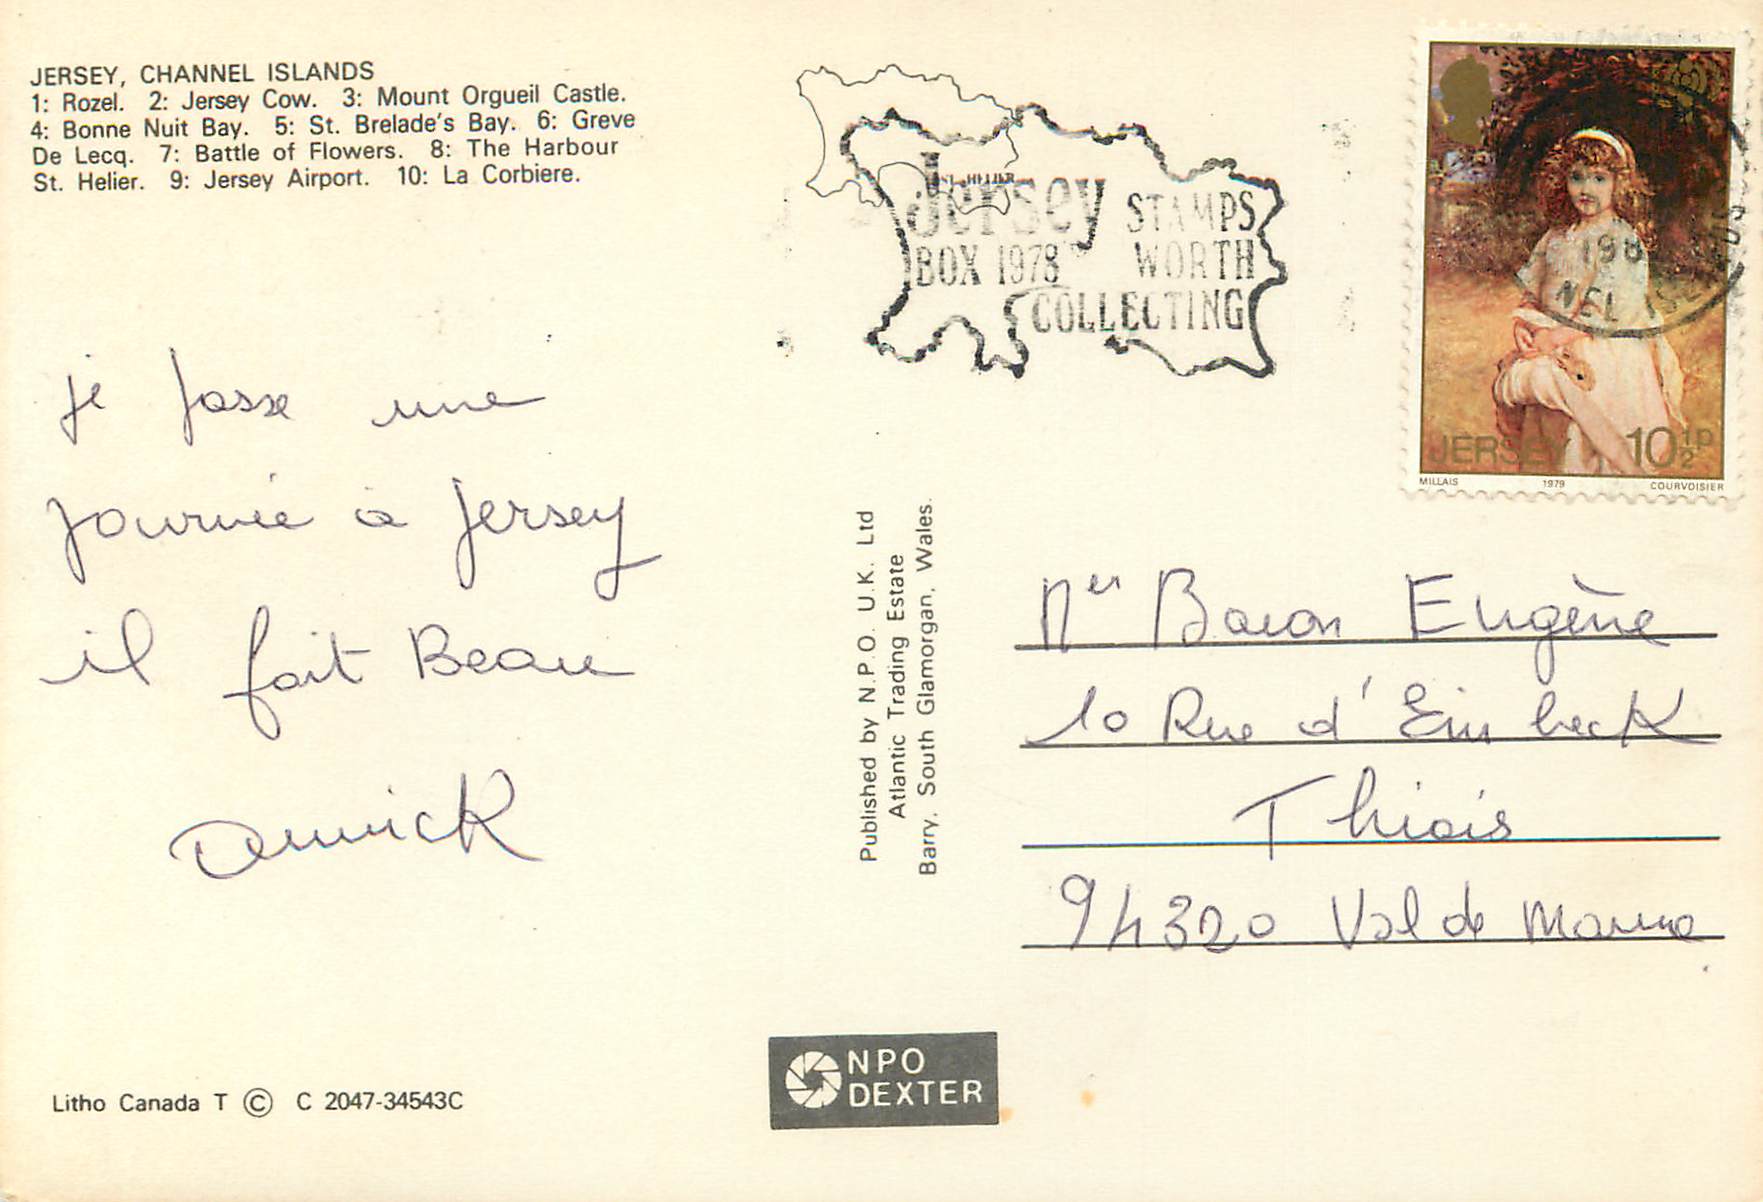 JERSEY, CHANNEL ISLANDS
1: Rozel. 2: Jersey Cow. 3: Mount Orgueil Castle.
4: Bonne Nuit Bay. 5: St. Brelade's Bay. 6: Greve
De Lecq. 7: Battle of Flowers. 8: The Harbour
St. Helier. 9: Jersey Airport. 10: La Corbiere.
je passe une
journée à Jersey
il fait Beau
Annick
Litho Canada T © C 2047-34543C
ST. HELIER
Jersey STAMPS
BOX 1978 WORTH
COLLECTING
198
NEL ISLANDS
JERSEY 10½p
MILLAIS 1979 COURVOISIER
Published by N.P.O. U.K. Ltd
Atlantic Trading Estate
Barry, South Glamorgan, Wales.
Mer Baron Eugène
10 Rue d'Einbeck
Thiais
94320 Val de Marne
NPO
DEXTER